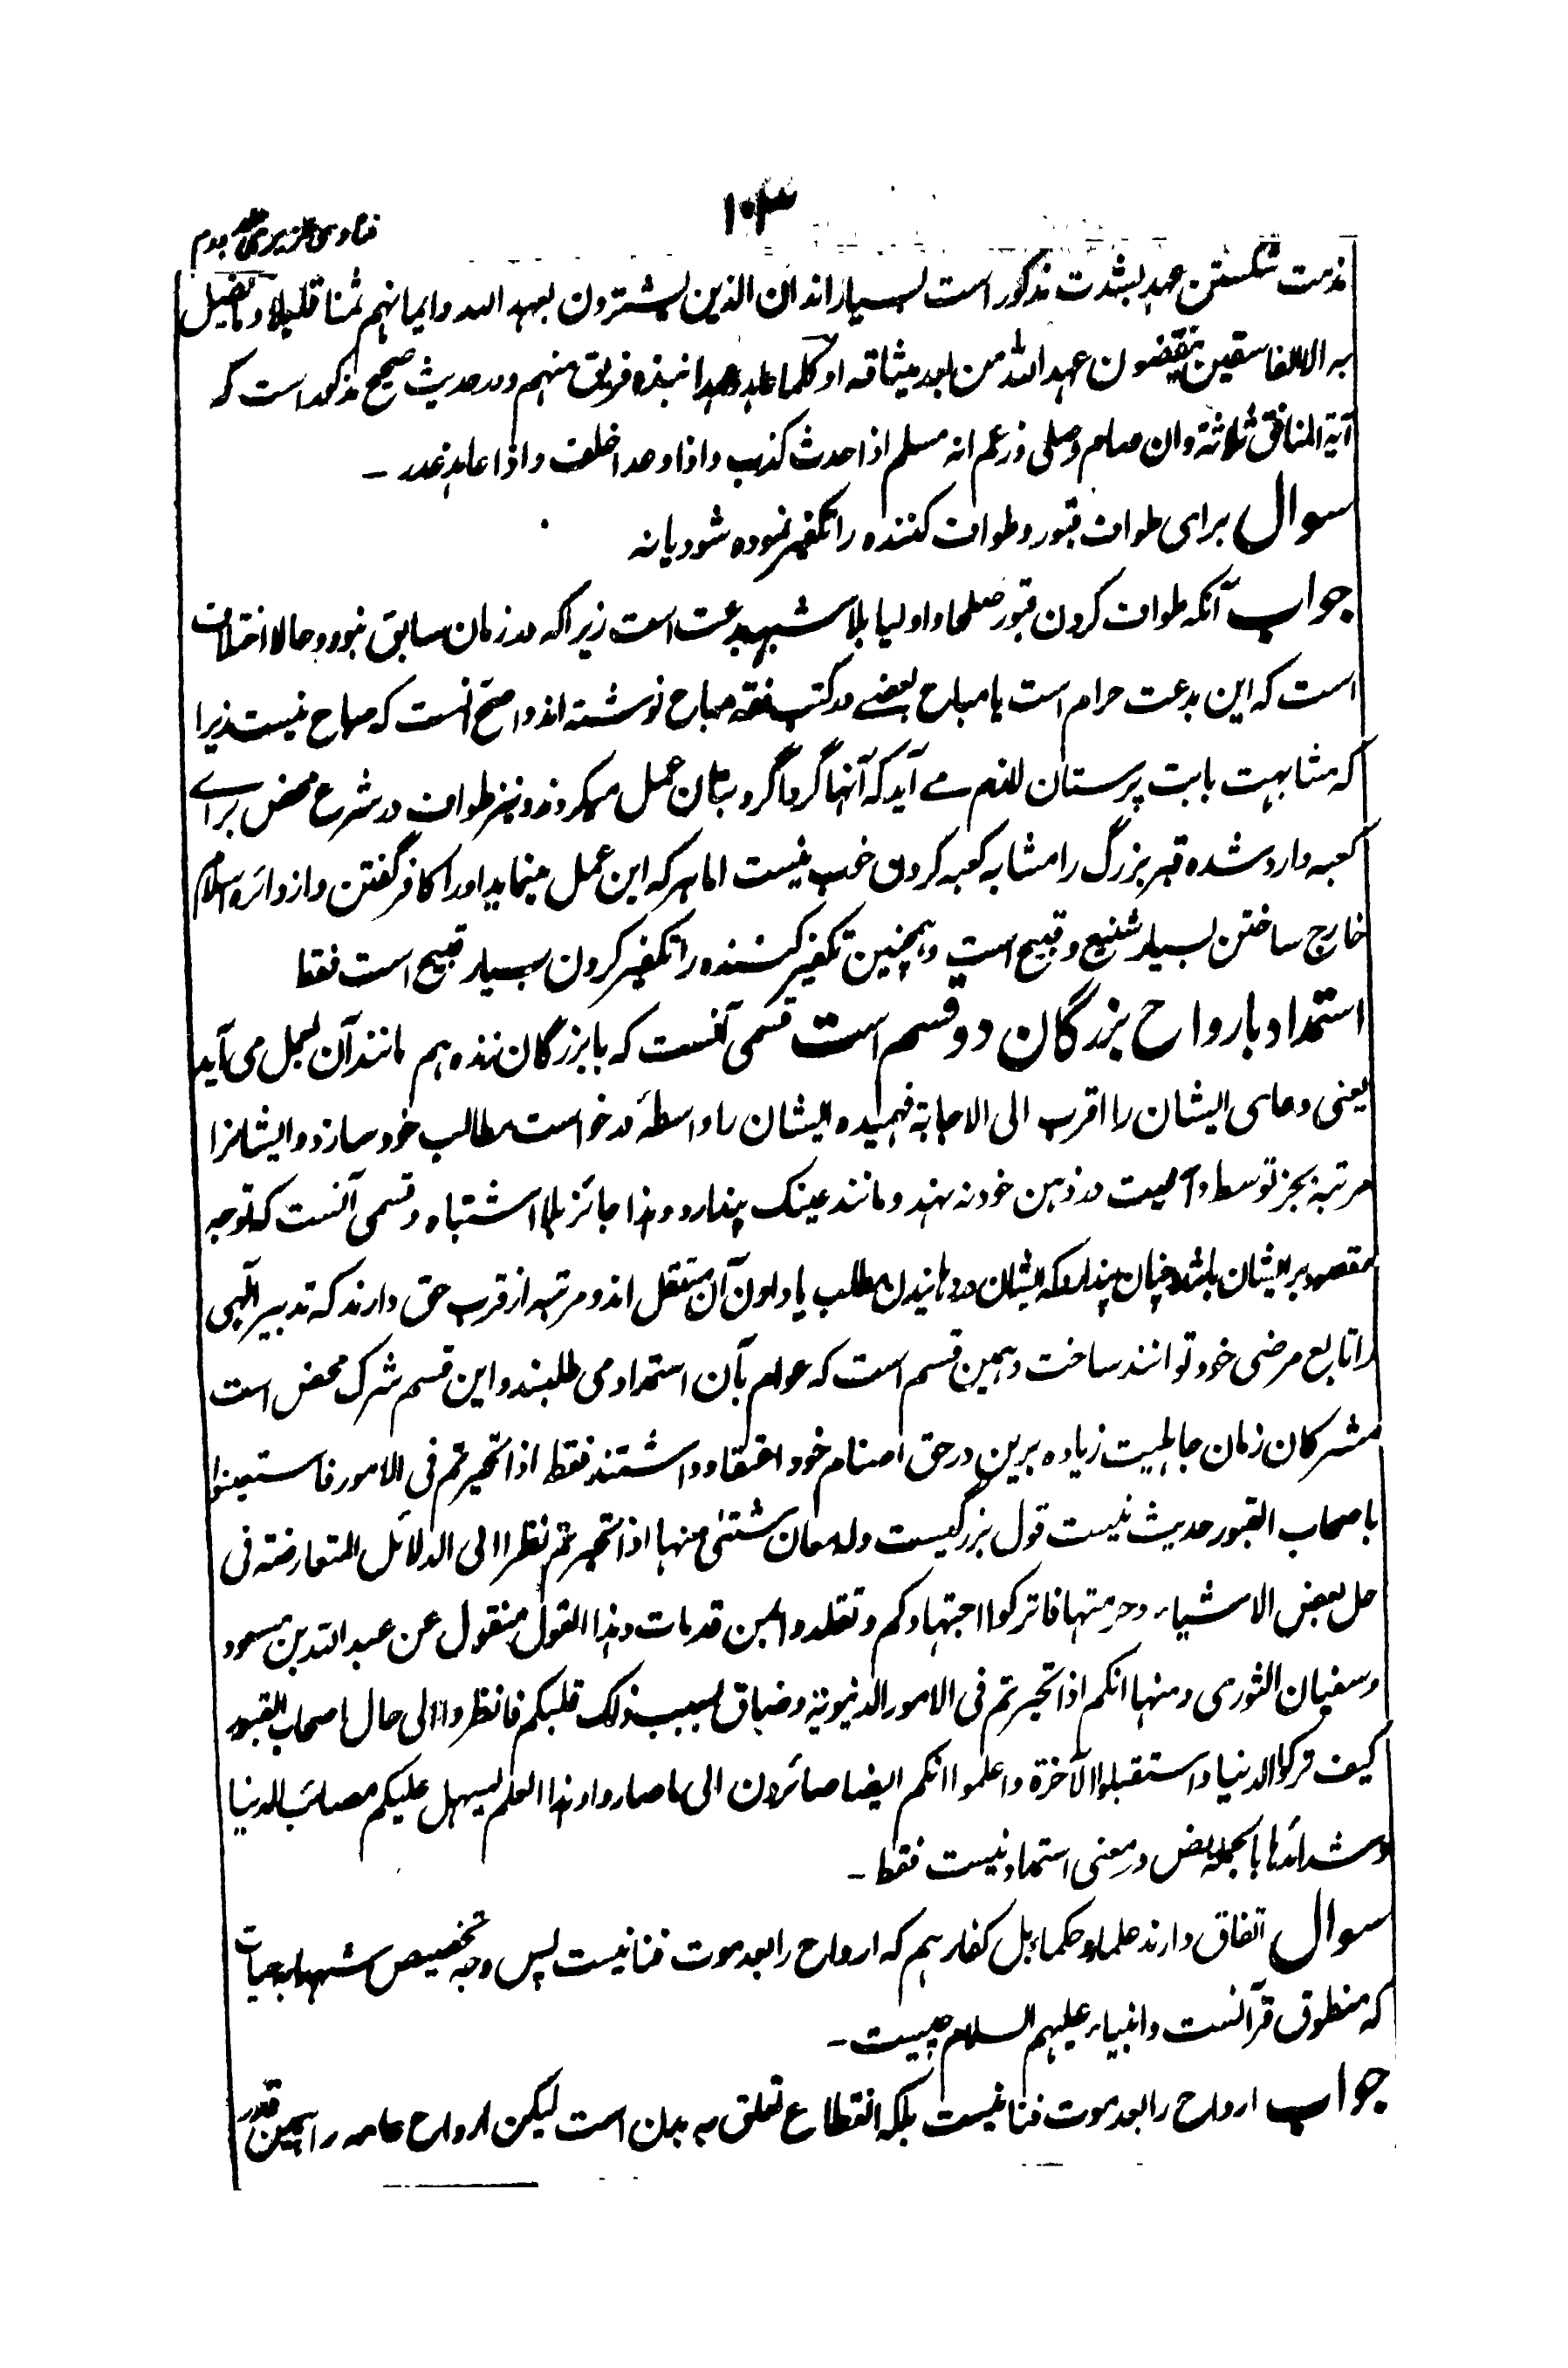 ۱۰۳
فتاوی عزیزی جلد دوم
مذمت شکستن عهد بشدت مذکور است بسیار اند ان الذین یشترون بعهد الله وایمانهم ثمنا قلیلا و ما یضل
به الا الفاسقین ینقضون عهد الله من بعد میثاقه او کلما عاهدوا عهدا نبذه فریق منهم و در حدیث صحیح مذکور است که
آیة المنافق ثلاثة وان صام وصلی وزعم انه مسلم اذا حدث کذب واذا وعد اخلف واذا عاهد غدر ـ
سوال برای طواف قبور و طواف کننده را تکفیر نموده شود یا نه
جواب آنکه طواف کردن قبور صلحا و اولیا بلا شبهه بدعت است زیرا که در زمان سابق نبود و حالا اختلاف
است که این بدعت حرام است یا مباح بعضے در کتب فقه مباح نوشته اند و اصح آنست که مباح نیست زیرا
که مشابهت با بت پرستان لازم مے آید که آنها گرداگرد بتان عمل میکردند و نیز طواف در شرع محض براے
کعبه وارد شده قبر بزرگ را مشابه کعبه کردن خوب نیست اما هر که این عمل مینماید او را کافر گفتن و از دائره اسلام
خارج ساختن بسیار شنیع و قبیح است و همچنین تکفیر کننده را تکفیر کردن بسیار قبیح است فقط
استمداد بارواح بزرگان دو قسم است قسمی آنست که با بزرگان زنده هم مانند آن بعمل می آید
یعنی دعای ایشان را اقرب الی الاجابة فهمیده ایشان را واسطهٔ درخواست مطالب خود سازد و ایشانرا
مرتبه بجز توسط و آلیت در ذهن خود نه نهد و مانند عینک پندارد و هذا جائز بلا اشتباه و قسمی آنست که توجه
مقصور بر ایشان باشد چنان پندارد که ایشان در رسانیدن مطلب یا دادن آن مستقل اند و مرتبه از قرب حق دارند که تدبیر الٰهی
را تابع مرضی خود توانند ساخت و همین قسم است که عوام بآن استمداد می طلبند و این قسم شرک محض است
مشرکان زمان جاهلیت زیاده برین در حق اصنام خود اعتقاد داشتند فقط اذا تحیرتم فی الامور فاستعینوا
باصحاب القبور حدیث نیست قول بزرگیست وله معان شتٰی منها اذا تحیرتم نظرا الی الدلائل المتعارضة فی
حل بعض الاشیاء وحرمتها فاترکوا اجتهادکم وتقلدوا لمن قد مات وهذا القول منقول عن عبد الله بن مسعود
وسفیان الثوری ومنها انکم اذا تحیرتم فی الامور الدنیویة وضاق بسبب ذلک قلبکم فانظروا الی حال اصحاب القبور
کیف ترکوا الدنیا واستقبلوا الآخرة واعلموا انکم ایضا صائرون الی ما صاروا وهذا العلم یسهل علیکم مصائب الدنیا
وشدائدها بالجمله نص در معنی استمداد نیست فقط ـ
سوال اتفاق دارند علما و حکماء بل کفار هم که ارواح را بعد موت فنا نیست پس وجه تخصیص شهدا بحیات
که منطوق قرآنست و انبیاء علیهم السلام چیست ـ
جواب ارواح را بعد موت فنا نیست بلکه انقطاع تعلق به بدن است لیکن ارواح عامه را همین قدر